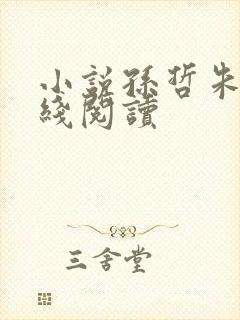 小説孫哲朱
綫閱讀
三舍堂